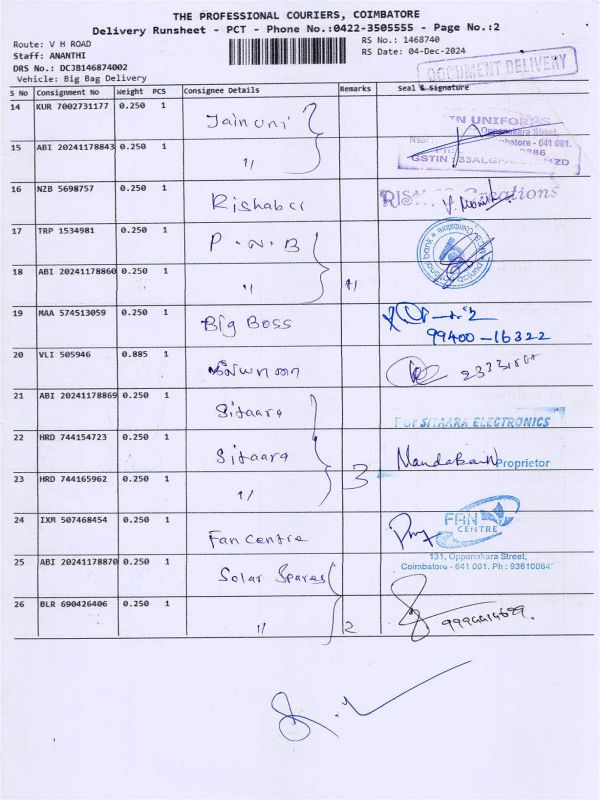 THE PROFESSIONAL COURIERS, COIMBATORE
Delivery Runsheet - PCT - Phone No.:0422-3505555 - Page No.:2
Route: V H ROAD
RS No.: 1468740
Staff: ANANTHI
RS Date: 04-Dec-2024
DRS No.: DCJB146874002
Vehicle: Big Bag Delivery
DOCUMENT DELIVERY
S No Consignment No Weight PCS Consignee Details Remarks Seal & Signature
14 KUR 7002731177 0.250 1 Jain uni
UNIFORMS
Oppanakara Street,
15 ABI 20241178843 0.250 1 "
Coimbatore - 641 001.
GSTIN : 33ALGP
16 NZB 5698757 0.250 1 Rishaber
Creations
17 TRP 1534981 0.250 1 P.N.B
punjab national bank
Coimbatore
18 ABI 20241178860 0.250 1 "
19 MAA 574513059 0.250 1 Big Boss
99400-16322
20 VLI 505946 0.885 1
21 ABI 20241178869 0.250 1 Sitaara
For SITAARA ELECTRONICS
22 HRD 744154723 0.250 1 Sitaara
Proprietor
23 HRD 744165962 0.250 1 " 3
24 IXM 507468454 0.250 1 Fan centre
FAN CENTRE
131, Oppanakara Street,
Coimbatore - 641 001. Ph : 93610064
25 ABI 20241178870 0.250 1 Solar Spares
26 BLR 690426406 0.250 1 " 2